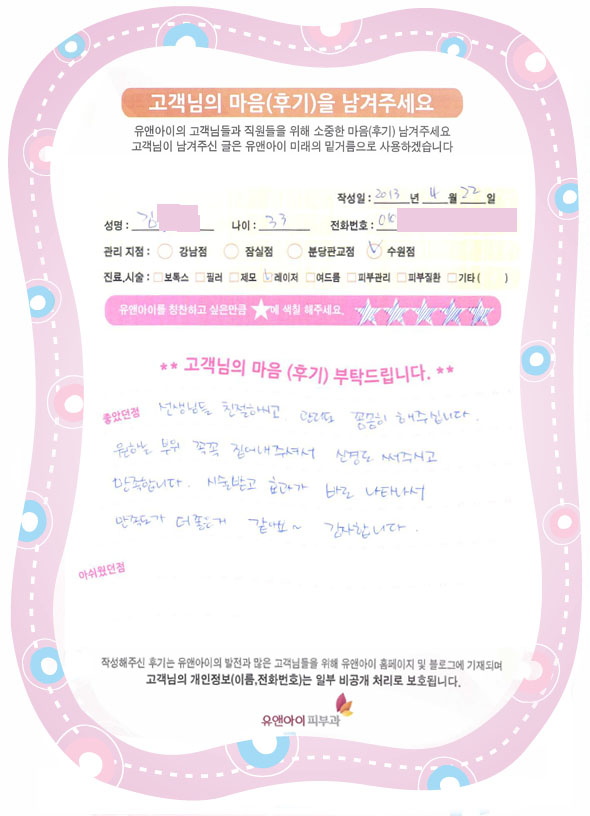 고객님의 마음(후기)을 남겨주세요
유앤아이의 고객님들과 직원들을 위해 소중한 마음(후기) 남겨주세요
고객님이 남겨주신 글은 유앤아이 미래의 밑거름으로 사용하겠습니다
작성일 : 2013 년 4 월 22 일
성명 : 김 나이 : 33 전화번호 : 01
관리 지점 : 강남점 잠실점 분당판교점 수원점
진료,시술 : 보톡스 필러 제모 레이저 여드름 피부관리 피부질환 기타 ( )
유앤아이를 칭찬하고 싶은만큼 ★에 색칠 해주세요.
** 고객님의 마음 (후기) 부탁드립니다. **
좋았던점 선생님들 친절하시고 관리도 꼼꼼히 해주십니다.
원하는 부위 꼭꼭 짚어내주셔서 신경도 써주시고
만족합니다. 시술받고 효과가 바로 나타나서
만족도가 더 좋은거 같아요~ 감사합니다.
아쉬웠던점
작성해주신 후기는 유앤아이의 발전과 많은 고객님들을 위해 유앤아이 홈페이지 및 블로그에 기재되며
고객님의 개인정보(이름,전화번호)는 일부 비공개 처리로 보호됩니다.
유앤아이 피부과